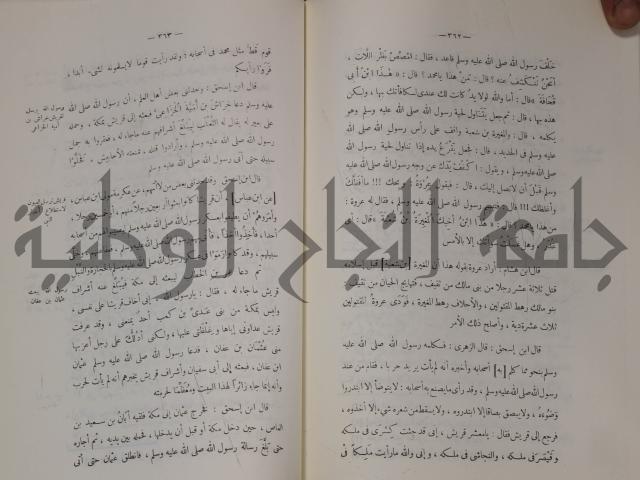 — ٣٦٢ —
خلف رسول الله صلى الله عليه وسلم قاعد ، فقال : امصص بظر اللات ،
أنحن ننكشف عنه ؟ قال : من هذا يا محمد ؟ قال : « هذا ابن أبى
قحافة » قال : أما والله لولا يد كانت لك عندى لكافأتك بها ، ولكن
هذه بها ، قال : ثم جعل يتناول لحية رسول الله صلى الله عليه وسلم وهو
يكلمه ، قال : والمغيرة بن شعبة واقف على رأس رسول الله صلى الله
عليه وسلم فى الحديد ، قال : فجعل يقرع يده إذا تناول لحية رسول
الله صلى الله عليه وسلم ، ويقول : اكفف يدك عن وجه رسول الله صلى الله عليه
وسلم قبل أن لا تصل إليك ، قال : فيقول عروة : ويحك !!! ما أفظك
وأغلظك !!! قال : فتبسم رسول الله صلى الله عليه وسلم ، فقال له عروة :
من هذا يا محمد ؟ قال : « هذا ابن أخيك المغيرة بن شعبة » قال : أى
غدر ، وهل غسلت سوأتك إلا بالأمس
قال ابن هشام : أراد عروة بقوله هذا أن المغيرة [ بن شعبة ] قبل إسلامه
قتل ثلاثة عشر رجلا من بنى مالك من ثقيف ، فتهايج الحيان من ثقيف :
بنو مالك رهط المقتولين ، والأحلاف رهط المغيرة ، فودى عروة المقتولين
ثلاث عشرة دية ، وأصلح ذلك الأمر
قال ابن إسحق : قال الزهرى : فكلمه رسول الله صلى الله عليه
وسلم بنحو مما كلم [ به ] أصحابه وأخبره أنه لم يأت يريد حربا ، فقام من عند
رسول الله صلى الله عليه وسلم ، وقد رأى ما يصنع به أصحابه : لا يتوضأ إلا ابتدروا
وضوءه ، ولا يبصق بصاقا إلا ابتدروه ، ولا يسقط من شعره شىء إلا أخذوه ،
فرجع إلى قريش فقال : يا معشر قريش ، إنى قد جئت كسرى فى ملكه
وقيصر فى ملكه ، والنجاشى فى ملكه ، وإنى والله ما رأيت ملكا فى
— ٣٦٣ —
قوم قط مثل محمد فى أصحابه ؛ ولقد رأيت قوما لا يسلمونه لشىء أبدا ،
فروا رأيكم
قال ابن إسحق : وحدثنى بعض أهل العلم ، أن رسول الله صلى الله
عليه وسلم دعا خراش بن أمية الخزاعى فبعثه إلى قريش بمكة ، وحمله
على بعير له يقال له الثعلب ليبلغ أشرافهم عنه ما جاء له ، فعقروا به جمل
رسول الله صلى الله عليه وسلم ، وأرادوا قتله ، فمنعته الأحابيش ، فخلوا
سبيله حتى أتى رسول الله صلى الله عليه وسلم
قال ابن إسحق : وقد حدثنى بعض من لا أتهم ، عن عكرمة مولى ابن عباس ،
[ عن ابن عباس ] أن قريشا كانوا بعثوا أربعين رجلا منهم ، أو خمسين رجلا ،
وأمروهم أن يطيفوا بعسكر رسول الله صلى الله عليه وسلم ليصيبوا لهم من أصحابه
أحدا ، فأخذوا أخذا ، فأتى بهم رسول الله صلى الله عليه وسلم ، فعفا عنهم وخلى
سبيلهم ، وقد كانوا رموا فى عسكر رسول الله صلى الله عليه وسلم بالحجارة والنبل
ثم دعا عمر بن الخطاب ليبعثه إلى مكة فيبلغ عنه أشراف
قريش ما جاء له ، فقال : يا رسول الله ، إنى أخاف قريشا على نفسى ،
وليس بمكة من بنى عدى بن كعب أحد يمنعنى ، وقد عرفت
قريش عداوتى إياها وغلظتى عليها ، ولكنى أدلك على رجل أعز بها
منى عثمان بن عفان ، فدعا رسول الله صلى الله عليه وسلم عثمان
ابن عفان ، فبعثه إلى أبى سفيان وأشراف قريش يخبرهم أنه لم يأت لحرب
وأنه إنما جاء زائرا لهذا البيت ومعظما لحرمته
قال ابن إسحق : فخرج عثمان إلى مكة فلقيه أبان بن سعيد بن
العاص ، حين دخل مكة أو قبل أن يدخلها ، فحمله بين يديه ، ثم أجاره
حتى بلغ رسالة رسول الله صلى الله عليه وسلم ، فانطلق عثمان حتى أتى
جامعة النجاح الوطنية